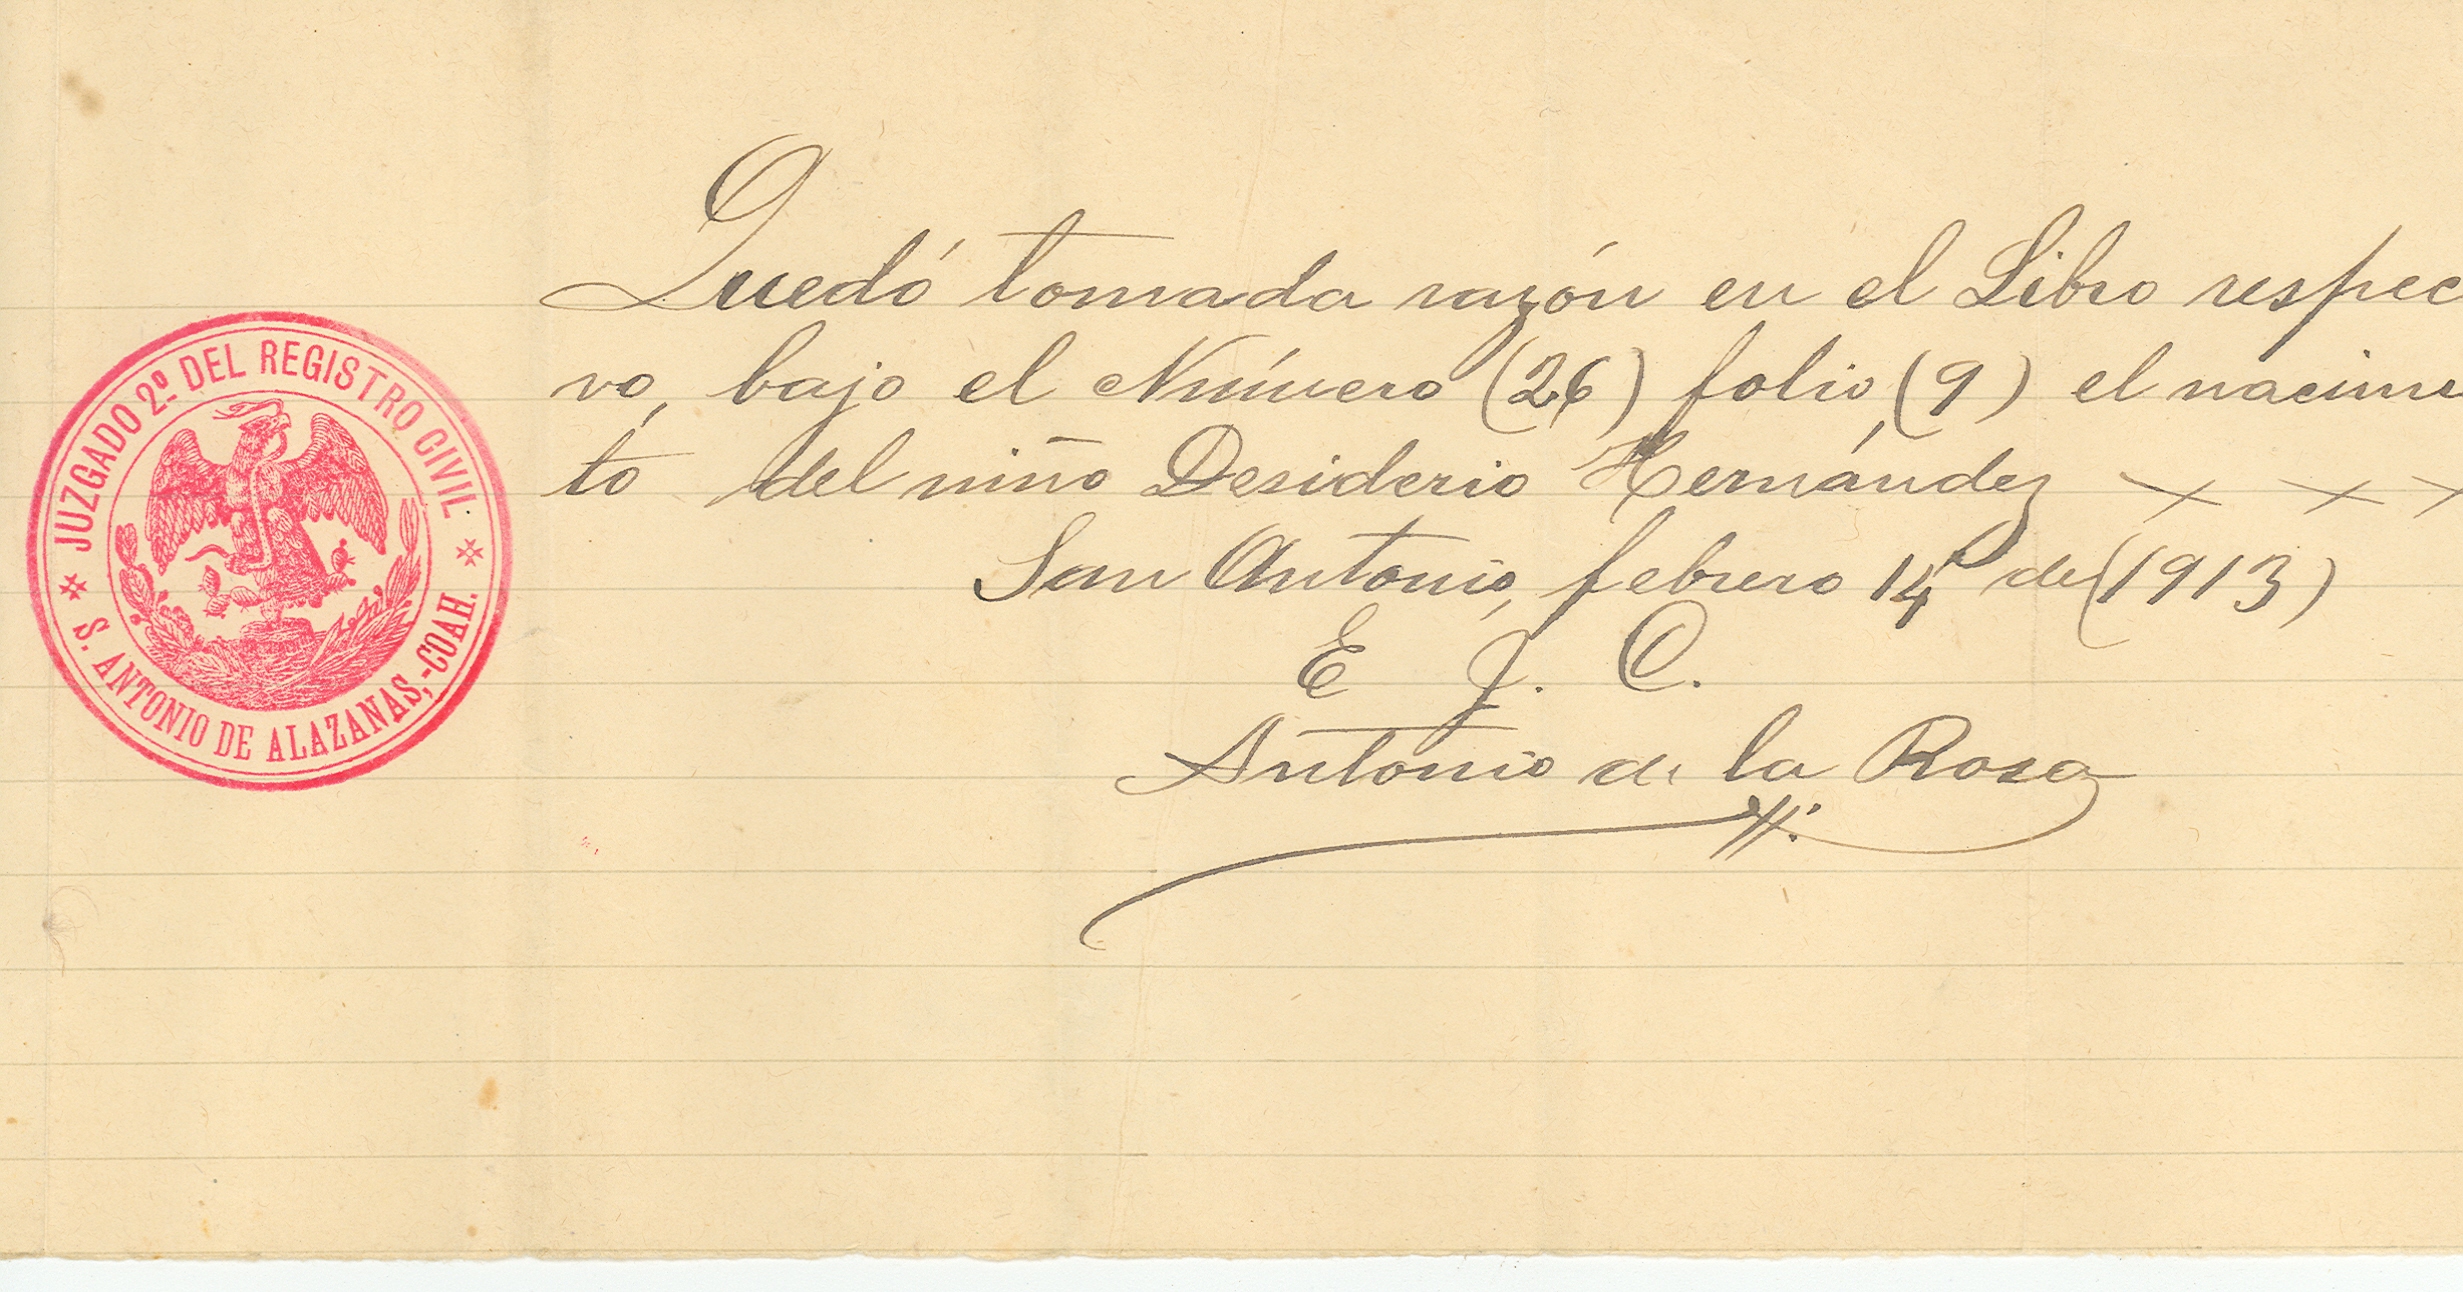 JUZGADO 2º DEL REGISTRO CIVIL
S. ANTONIO DE ALAZANAS,-COAH.
Quedó tomada razón en el Libro respec
vo, bajo el Número (26) folio (9) el nacimie
to del niño Desiderio Hernández x x x
San Antonio, febrero 14 de (1913)
E J. C.
Antonio de la Rosa